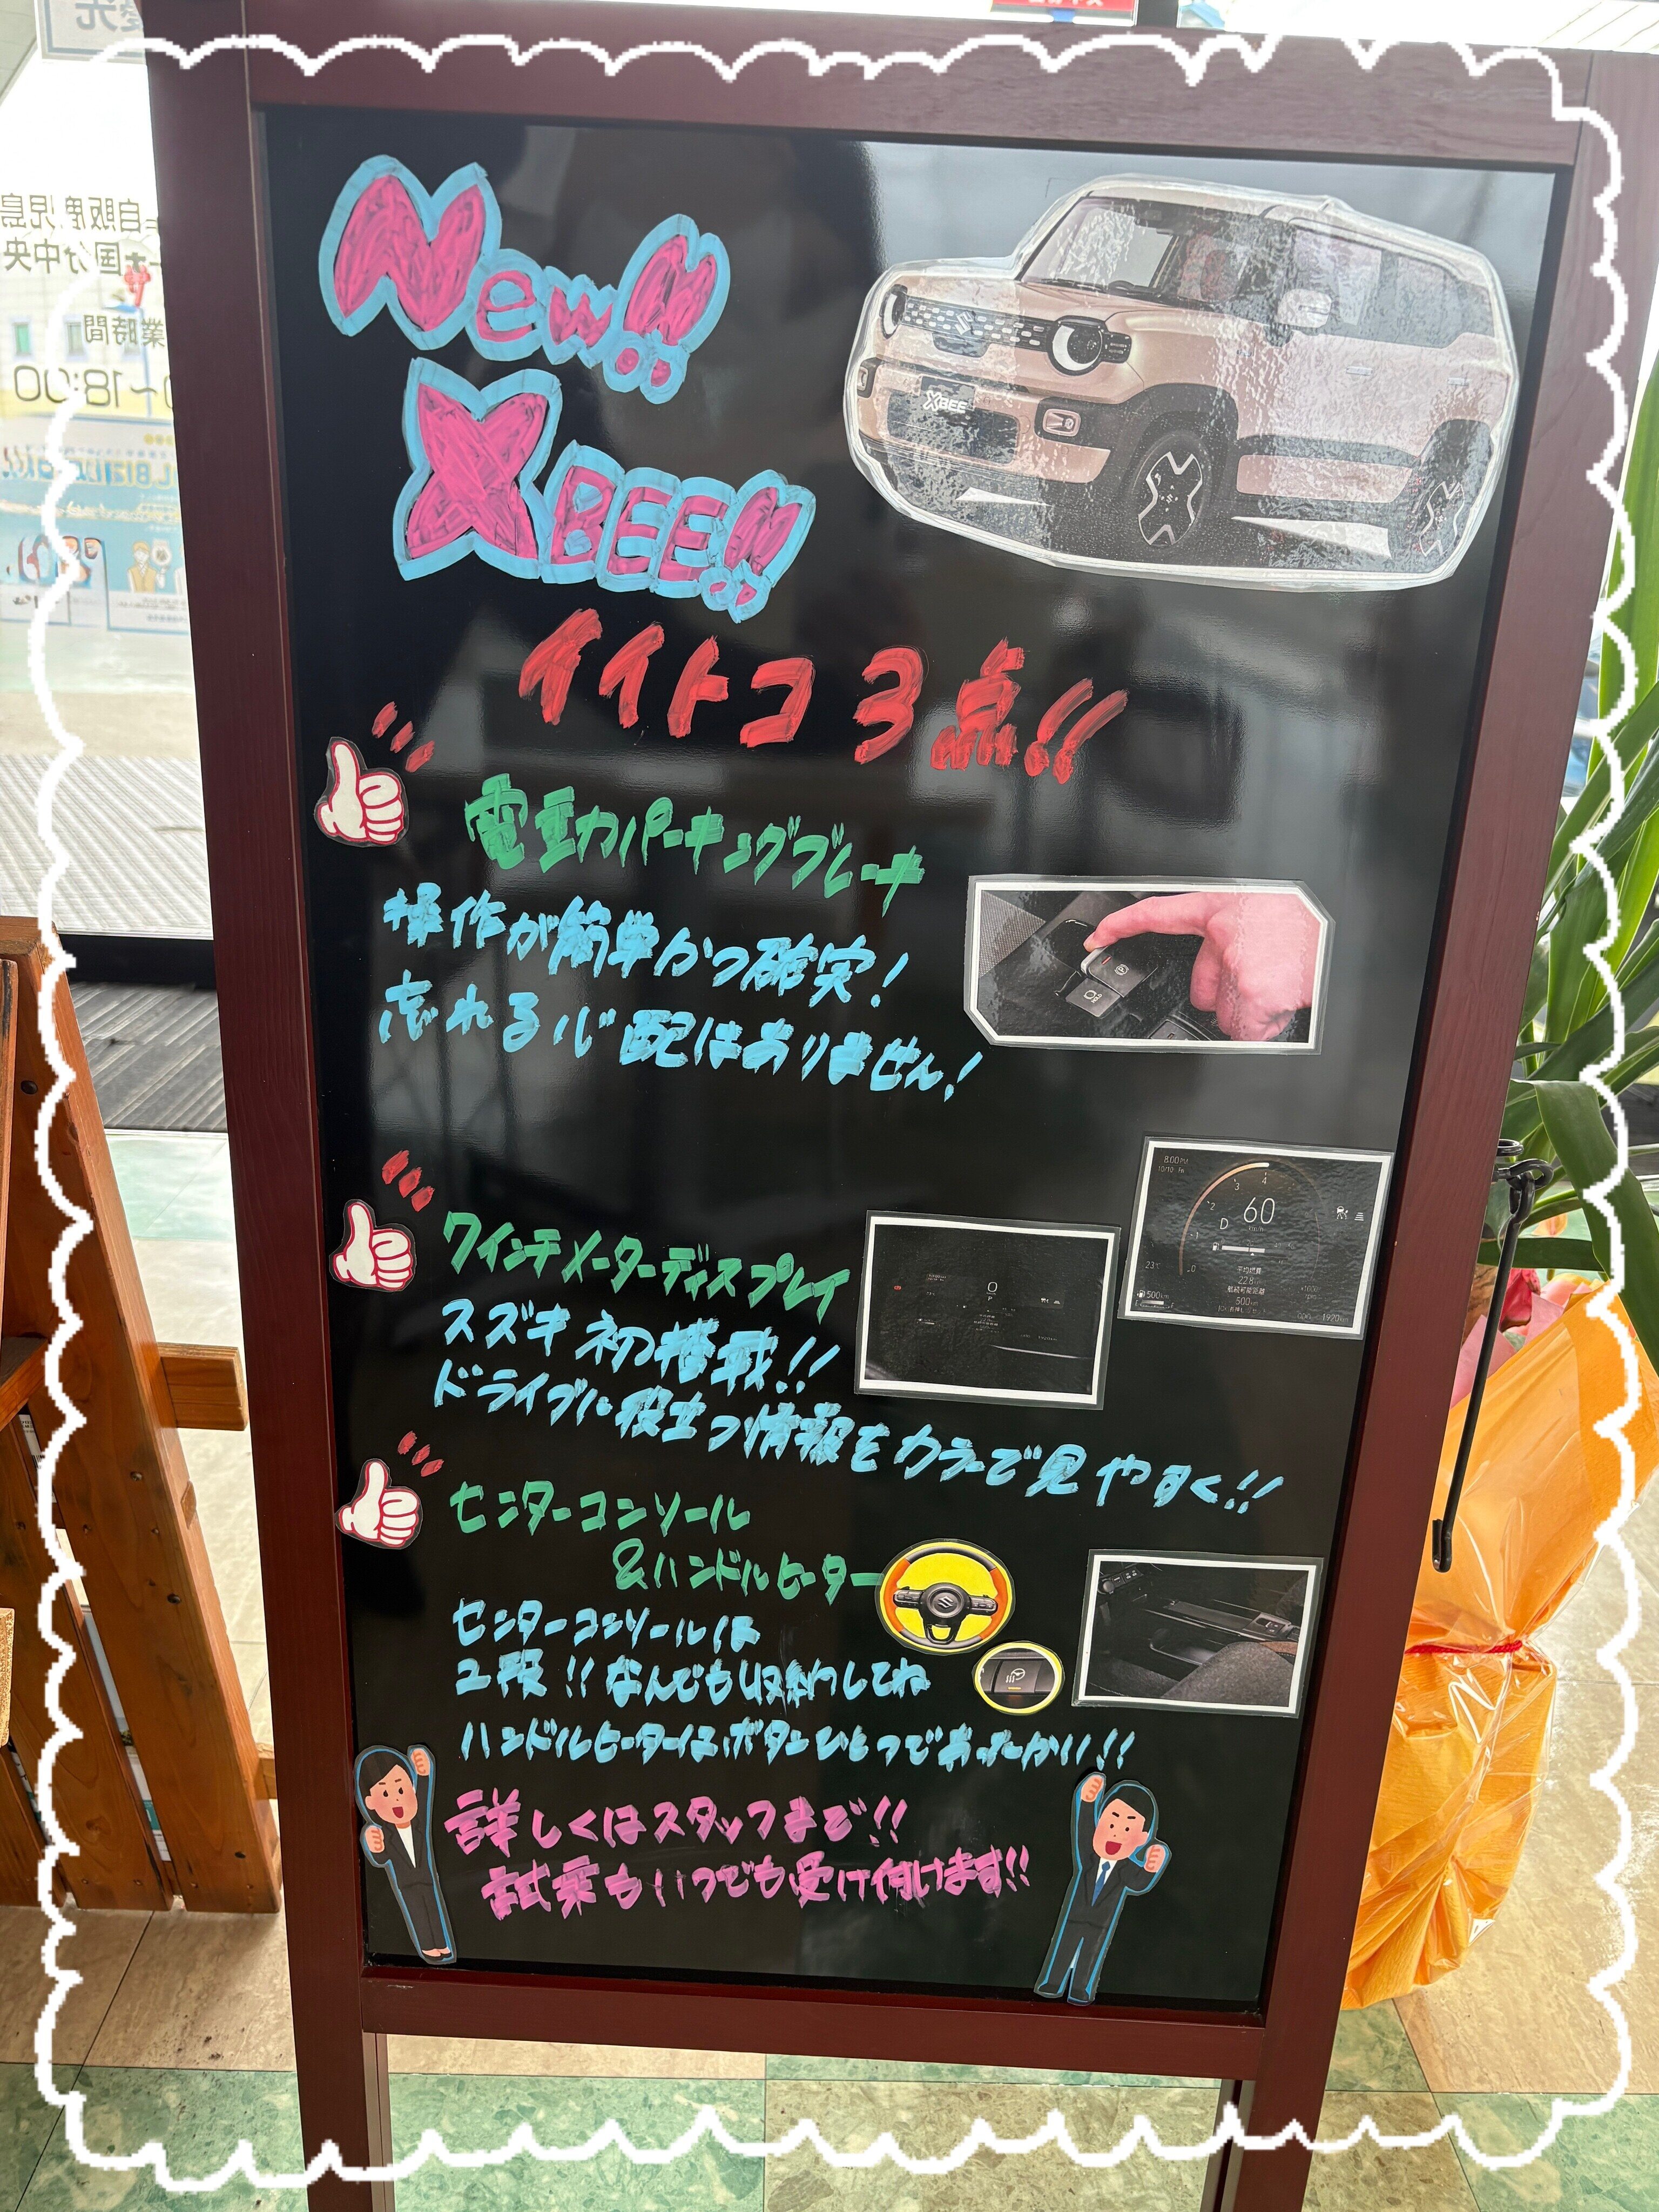 New!!
XBEE!!
XBEE
イイトコ3点!!
電動パーキングブレーキ
操作が簡単かつ確実！
忘れる心配はありません！
7インチメーターディスプレイ
スズキ初搭載!!
ドライブに役立つ情報をカラーで見やすく!!
8:00
60
D
平均燃費
22.8
航続可能距離
500km
23℃
センターコンソール
&ハンドルヒーター
センターコンソールは
2段!!なんでも収納してね
ハンドルヒーターはボタンひとつであったかい!!
詳しくはスタッフまで!!
試乗もいつでも受け付けます!!
自販鹿児島
国分中央
業時間
~18:00